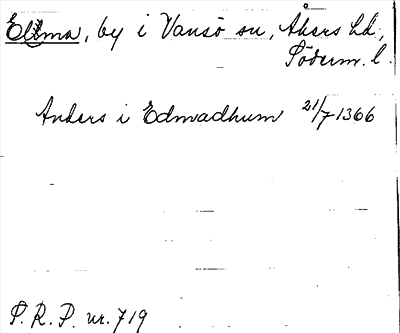 Eltma, by i Vansö sn, Åkers hd.,
Söderm. l.
Anders i Edmadhum 21/7 1366
S. R. P. nr. 719